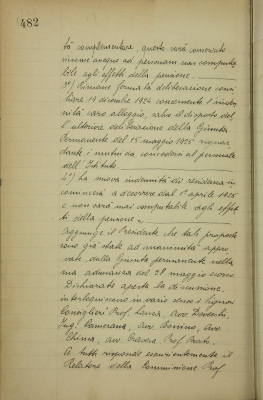 482
to complementare, questo verrà conservato
come assegno ad personam ma computa-
bile agli effetti della pensione.
3°) Rimane ferma la deliberazione consi-
liare 19 dicembre 1924 concernente l'inden-
nità caro alloggio, salvo il disposto del-
l'ulteriore deliberazione della Giunta
Permanente del 15 maggio 1925 riguar-
dante i mutui da concedersi al personale
dell'Istituto.
4°) La nuova indennità di residenza in-
comincia a decorrere dal 1° aprile 1925
e non sarà mai computabile agli effet-
ti della pensione.
Aggiunge il Presidente che tali proposte
sono già state ad unanimità appro-
vate dalla Giunta permanente nella
sua adunanza del 28 maggio scorso.
Dichiarata aperta la discussione,
interloquiscono in vario senso i Signori
Consiglieri Prof. Lanza, Avv.
Ing. Avv. Bonino, Avv.
Avv. Prof. Prato.
A tutti risponde esaurientemente il
Relatore della Commissione Prof.